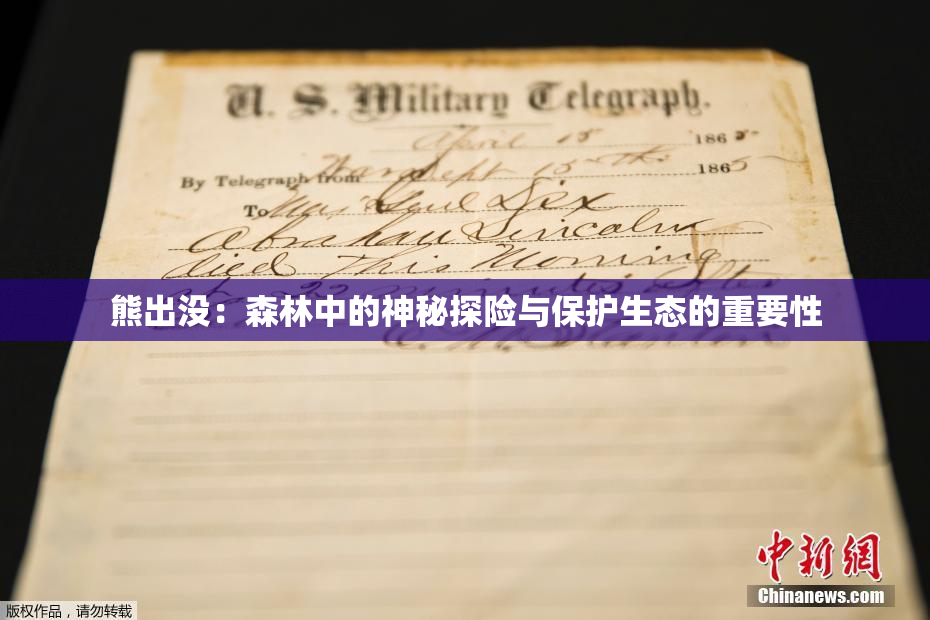 U. S. Military Telegraph.
April 15 1865
By Telegraph from War Dept 15th 1865
To Maj Genl Dix
Abraham Lincoln
died This Morning
at 22 minutes after
熊出没：森林中的神秘探险与保护生态的重要性
E. M. Stanton
中新網
Chinanews.com
版权作品，请勿转载